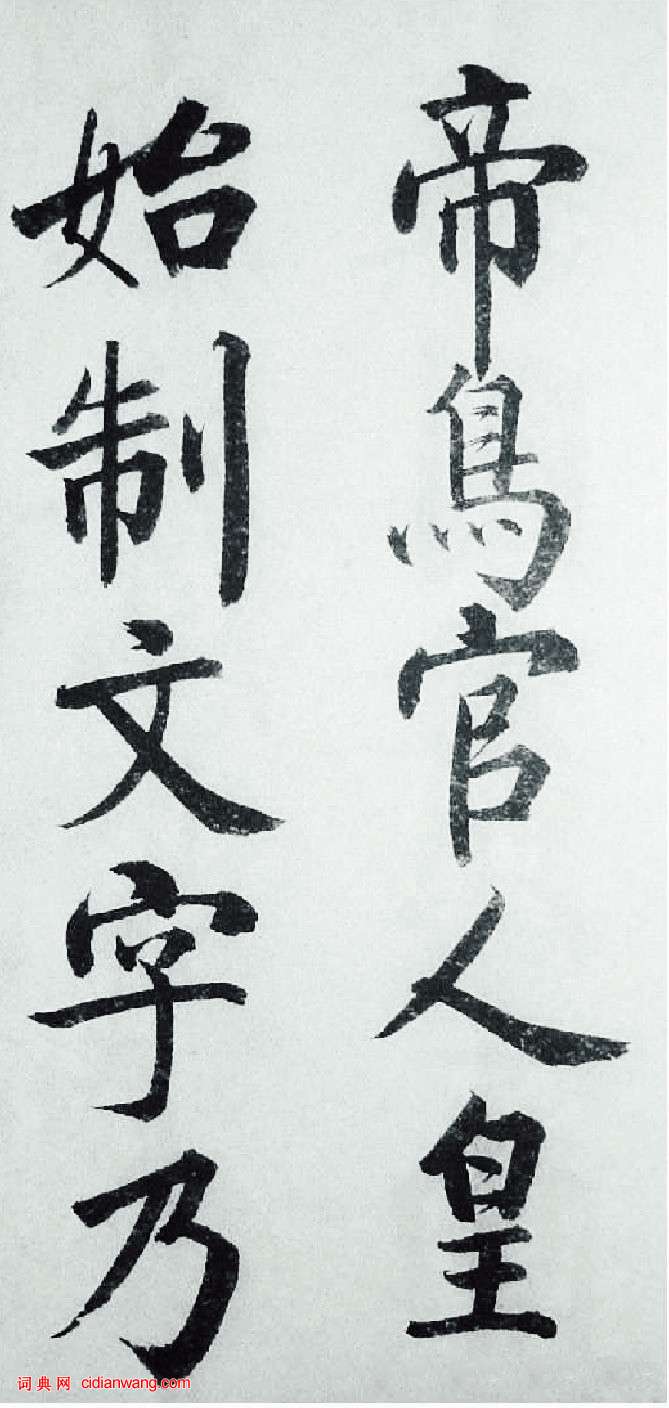 帝鳥官人皇
始制文字乃
词典网 cidianwang.com